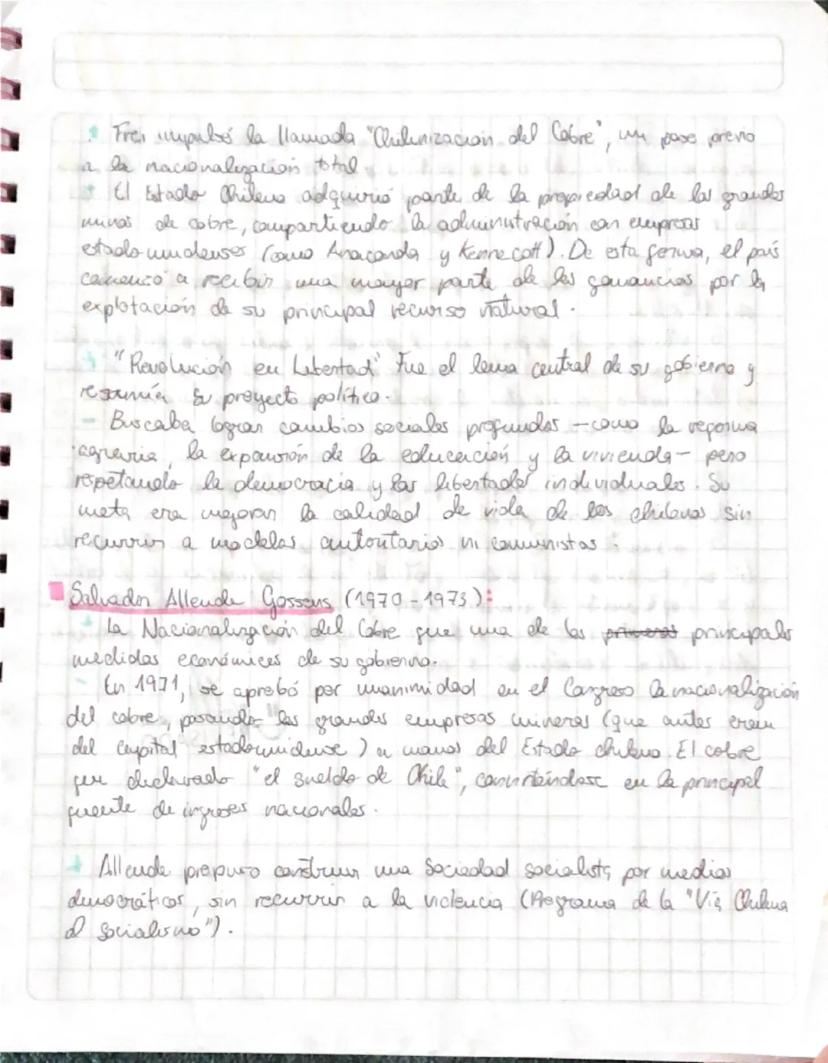 • Frei impulsó la llamada "Chilenización del Cobre", un paso previo
a la nacionalización total.
• El Estado Chileno adquirió parte de la propiedad de las grandes
minas de cobre, compartiendo la administración con empresas
estadounidenses (como Anaconda y Kennecott). De esta forma, el país
comenzó a recibir una mayor parte de las ganancias por la
explotación de su principal recurso natural.
+ "Revolución en Libertad" Fue el lema central de su gobierno y
resumía su proyecto político.
- Buscaba lograr cambios sociales profundos - como la reforma
agraria, la expansión de la educación y la vivienda - pero
respetando la democracia y las libertades individuales. Su
meta era mejorar la calidad de vida de los chilenos sin
recurrir a modelos autoritarios ni comunistas.
Salvador Allende Gossens (1970-1973):
+ La Nacionalización del Cobre fue una de las principales
medidas económicas de su gobierno.
- En 1971, se aprobó por unanimidad en el Congreso la nacionalización
del cobre, pasando las grandes empresas mineras (que antes eran
del capital estadounidense) a manos del Estado chileno. El cobre
fue declarado "el sueldo de Chile", convirtiéndose en la principal
fuente de ingresos nacionales.
+ Allende propuso construir una Sociedad socialista por medios
democráticos, sin recurrir a la violencia (Programa de la "Vía Chilena
al Socialismo").